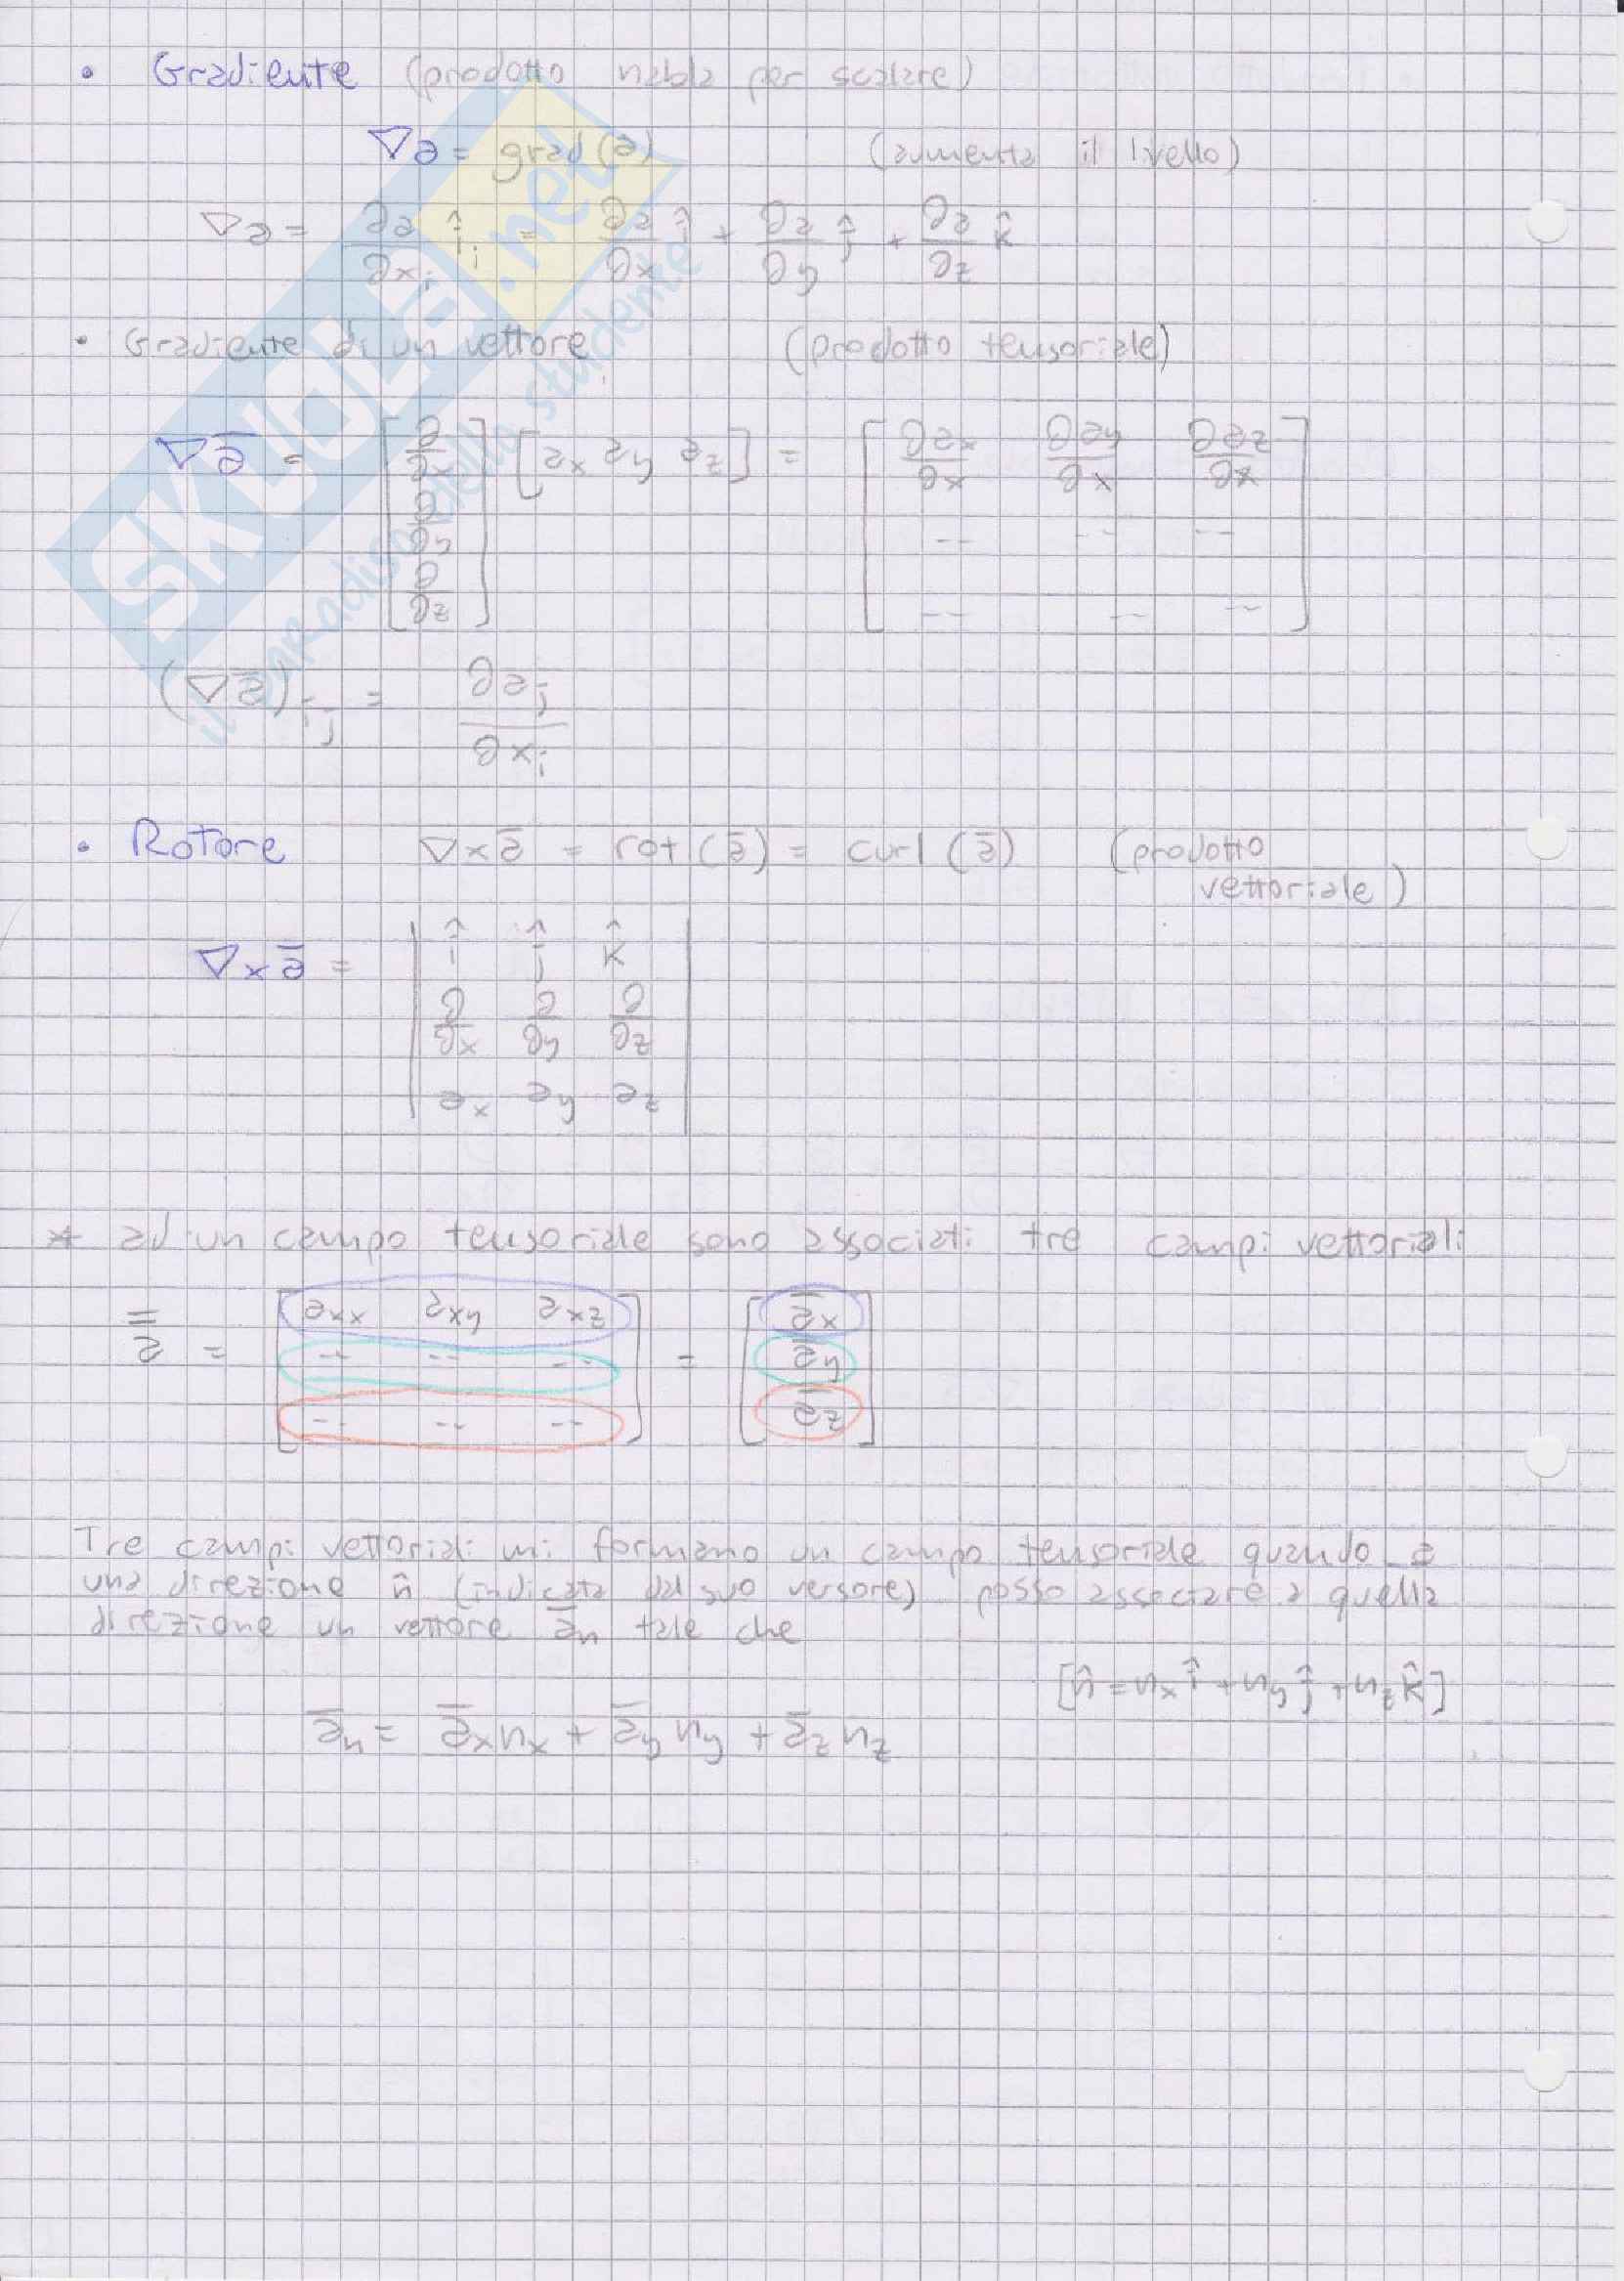 • Gradiente (prodotto nabla per scalare)
∇a = grad(a) (aumenta il livello)
∇a = ∂a/∂xᵢ îᵢ = ∂a/∂x î + ∂a/∂y ĵ + ∂a/∂z k̂
• Gradiente di un vettore (prodotto tensoriale)
∇a̅ = [∂/∂x ∂/∂y ∂/∂z] [ax ay az] = [∂ax/∂x ∂ay/∂x ∂az/∂x
-- -- --
-- -- --]
(∇a̅)ij = ∂aj/∂xi
• Rotore ∇×a̅ = rot(a̅) = curl(a̅) (prodotto
vettoriale)
∇×a̅ = | î ĵ k̂
∂/∂x ∂/∂y ∂/∂z
ax ay az |
* ad un campo tensoriale sono associati tre campi vettoriali
a̿ = [axx axy axz] = [a̅x]
-- -- -- a̅y
-- -- -- a̅z
Tre campi vettoriali mi formano un campo tensoriale quando a
una direzione n̂ (indicata dal suo versore) posso associare a quella
direzione un vettore a̅n tale che
[n̂ = nx î + ny ĵ + nz k̂]
a̅n = a̅x nx + a̅y ny + a̅z nz
SKUOLA.net
il paradiso dello studente